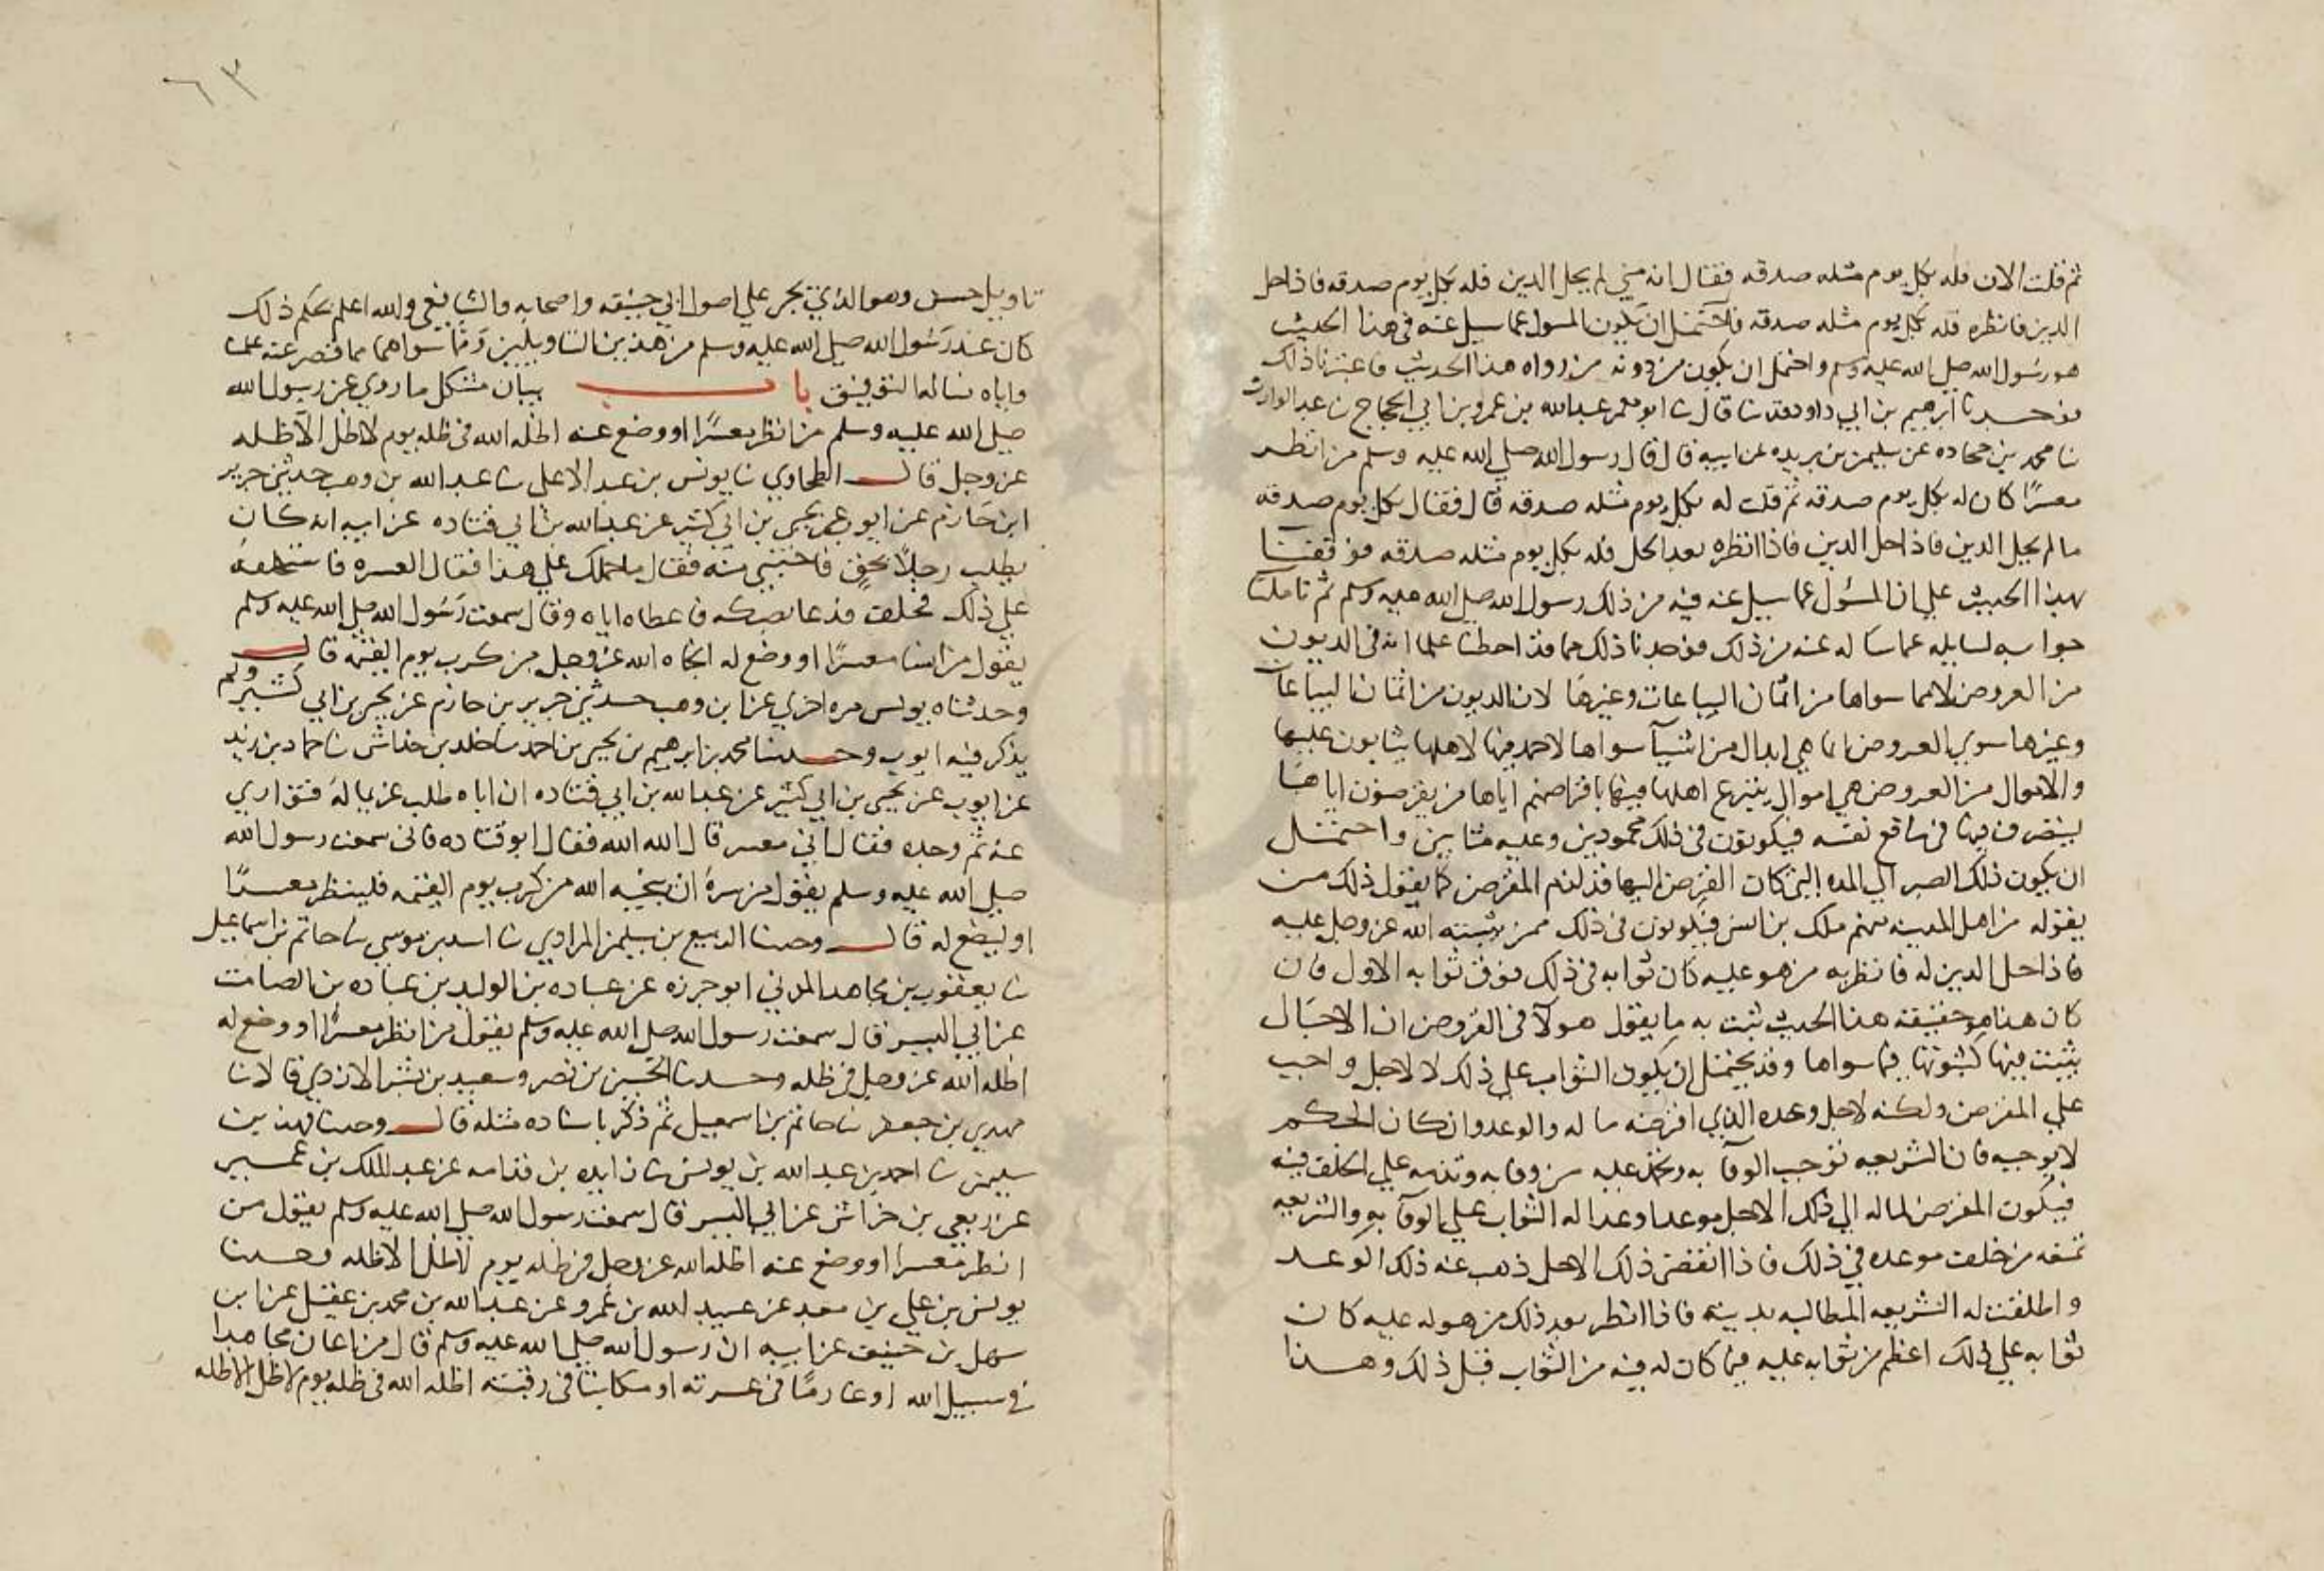 ثم قلت الان فله بكل يوم مثله صدقه فقال انه متي لم يحل الدين فله بكل يوم صدقه فاذا حل
الدين فانظره فله بكل يوم مثله صدقه فاحتمل ان يكون المسول عما سيل عنه في هذا الحديث
هو رسول الله صلي الله عليه وسلم واحتمل ان يكون من دونه من رواه هذا الحديث فاعتبرنا ذلك
ابرهيم بن ابي داود قد ثنا قال ثنا ابو معمر عبد الله بن عمرو بن ابي الحجاج ثنا عبد الوارث
ثنا محمد بن جحاده عن سليمن بن بريده عن ابيه قال قال رسول الله صلي الله عليه وسلم من انظر
معسرًا كان له بكل يوم صدقه ثم قلت له بكل يوم مثله صدقه قال فقال بكل يوم صدقه
ما لم يحل الدين فاذا حل الدين فاذا انظره بعد الحل فله بكل يوم مثله صدقه فوقفنا
بهذا الحديث علي ان المسؤل عما سيل عنه فيه من ذلك رسول الله صلي الله عليه وسلم ثم تاملنا
جوابه لسايله عما ساله عنه من ذلك فوجدنا ذلك مما قد احطنا علما انه في الديون
من العروض لا مما سواها من اثمان البياعات وغيرها لان الديون من اثمان البياعات
وغيرها سوي العروض انما هي ابدال من اشيآ سواها لا حمد فيها لاهلها يثابون عليها
والاموال من العروض هي اموال ينتزع اهلها فيها باقراضهم اياها من يقرضون اياها
ليتصرف فيها في منافع نفسه فيكونون في ذلك محمودين وعليه مثابين واحتمل
ان يكون ذلك الصبر الي المده التي كان القرض اليها قد لزم المقرض كما يقول ذلك من
يقوله من اهل المدينه منهم ملك بن انس فيكونون في ذلك ممن يثيبه الله عز وجل عليه
فاذا حل الدين له فانظر به من هو عليه كان ثوابه في ذلك فوق ثوابه الاول فان
كان هذا هو حقيقه هذا الحديث ثبت به ما يقول هولآ في القروض ان الاجال
يثبت فيها كثبوتها فيما سواها وقد يحتمل ان يكون الثواب علي ذلك لا لاجل واجب
علي المقرض ولكنه لاجل وعده الذي اقرضه ماله والوعد وان كان الحكم
لا يوجبه فان الشريعه توجب الوفا به وتحمد عليه من وفا به وتذمه علي الخلف فيه
فيكون المقرض لماله الي ذلك الاجل موعدا وعدا له الثواب علي الوفآ به والشريعه
تمنعه من خلف موعده في ذلك فاذا انقضي ذلك الاجل ذهب عنه ذلك الوعد
واطلقت له الشريعه المطالبه بدينه فاذا انظر بعد ذلك من هو له عليه كان
ثوابه علي ذلك اعظم من ثوابه عليه فيما كان له فيه من الثواب قبل ذلك وهذا
٦٣
تاويل حسن وهو الذي يجري علي اصول ابي حنيفه واصحابه والشافعي والله اعلم بحكم ذلك
كان عند رسول الله صلي الله عليه وسلم من هذين التاويلين ومما سواهما مما قصر عنه علمنا
واياه نساله التوفيق باب بيان مشكل ما روي عن رسول الله
صلي الله عليه وسلم من انظر معسرًا او وضع عنه اظله الله في ظله يوم لا ظل الا ظله
عز وجل قال الطحاوي ثنا يونس بن عبد الاعلي ثنا عبد الله بن وهب حدثني جرير
ابن حازم عن ايوب عن يحيي بن ابي كثير عن عبد الله بن ابي قتاده عن ابيه انه كان
يطلب رجلًا بحقٍ فاختبي منه فقال ما حملك علي هذا فقال العسره فاستحلفه
علي ذلك فحلف فدعا بصكه فاعطاه اياه وقال سمعت رسول الله صلي الله عليه وسلم
يقول من انسا معسرًا او وضع له انجاه الله عز وجل من كرب يوم القيمه قال
وحدثناه يونس مره اخري عن ابن وهب حدثني جرير بن حازم عن يحيي بن ابي كثير ولم
يذكر فيه ايوب وحدثنا محمد بن ابرهيم بن يحيي بن احمد ثنا خلد بن خداش ثنا حماد بن زيد
عن ايوب عن يحيي بن ابي كثير عن عبد الله بن ابي قتاده ان اباه طلب غريما له فتواري
عنه ثم وجده فقال اني معسر قال الله الله فقال ابو قتاده فاني سمعت رسول الله
صلي الله عليه وسلم يقول من سره ان ينجيه الله من كرب يوم القيمه فلينظر معسرًا
او ليضع له قال وحدثنا الربيع بن سليمن المرادي ثنا اسد بن موسي ثنا حاتم بن اسماعيل
ثنا يعقوب بن مجاهد المدني ابو حرزه عن عباده بن الوليد بن عباده بن الصامت
عن ابي اليسر قال سمعت رسول الله صلي الله عليه وسلم يقول من انظر معسرًا او وضع له
اظله الله عز وجل في ظله وحدثنا الحسين بن نصر وسعيد بن بشر الازدي قالا ثنا
مهدي بن جعفر ثنا حاتم بن اسمعيل ثم ذكر باسناده مثله قال وحدثنا فهد بن
سليمن ثنا احمد بن عبد الله بن يونس ثنا زايده بن قدامه عن عبد الملك بن عمير
عن ربعي بن خراش عن ابي اليسر قال سمعت رسول الله صلي الله عليه وسلم يقول من
انظر معسرا او وضع عنه اظله الله عز وجل في ظله يوم لا ظل الا ظله وحدثنا
يونس بن علي بن معبد عن عبيد الله بن عمرو عن عبد الله بن محمد بن عقيل عن ابن
سهل بن حنيف عن ابيه ان رسول الله صلي الله عليه وسلم قال من اعان مجاهدا
في سبيل الله او غارمًا في عسرته او مكاتبا في رقبته اظله الله في ظله يوم لا ظل الا ظله